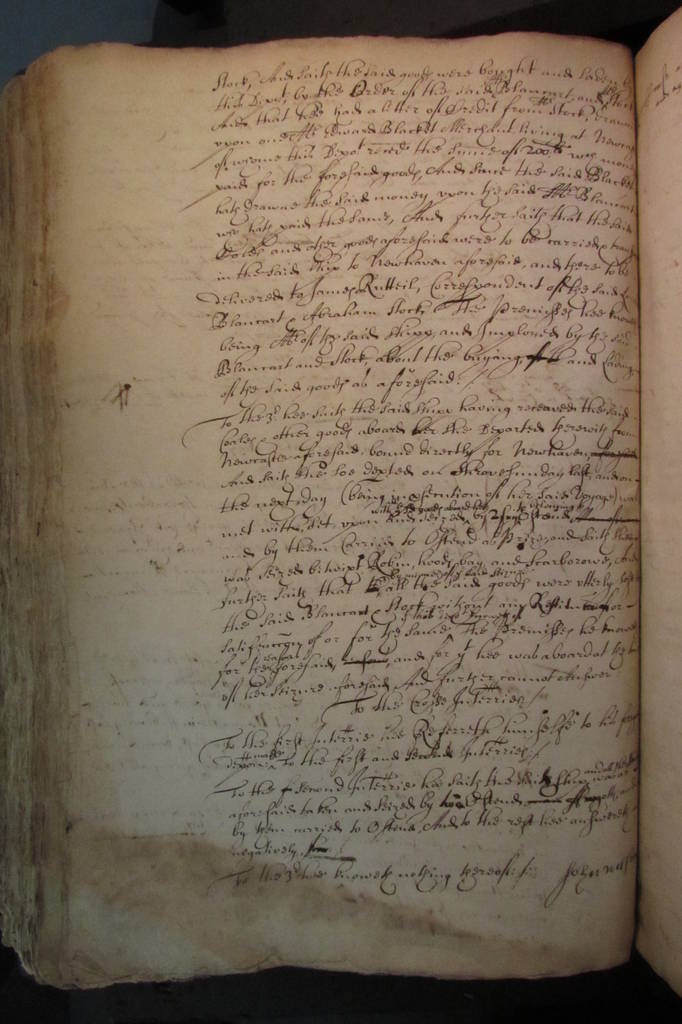 Stock, And saith the said goods were bought and laden by
this Depot, by the Order of the said Blancart and Stock
And that hee had a letter of Credit from Mr Stock, drawne
upon one Mr Edward Blacket Merchant living at Newcastle
of whome this Depot received the summe of 200li wch money
paid for the foresaid goods, And since the said Blacket
hath drawne the said money upon the said Mr Blancart
who hath paid the same, And further saith that the said
Coles and other goods aforesaid were to be carried
in the said ship to Newhaven aforesaid, and there to be
delivered to James Rutteil, Correspondent of the said
Blancart & Abraham Stock, The Premisses hee knoweth
being Mr of the said shipp, and Imployed by the said
Blancart and Stock, about the buying and lading
of the said goods as aforesaid:
To the 3d hee saith the said shipp having received the said
Coales & other goods aboard her she departed therewith from
Newcastle aforesaid, bound directly for Newhaven
And saith she soe depted on Shrovesunday last, and on
the next day (being in prosecution of her said voyage) was
met with, set upon and seized by
and by them Carried to Ostend as Prize, and saith she
was seized betwixt Robin, hoods bay, and Scarborowe, And
further saith that all the said goods were utterly lost to
the said Blancart & Stock without any Restitucon or
satisfaccon of or for the same. The Premisses he knoweth
for the reasons aforesaid, and for yt hee was aboard at the time
of her seizure aforesaid, And further cannot Answer
To the Crosse Interries /
To the first Interrie hee Referreth himselfe to his fore
deposicon to the first and second Interries /
To the second Interrie hee saith the shipp was
aforesaid taken and seized by Ostend and
by them carried to Ostend, And to the rest hee answereth
negatively.
To the 3d hee knoweth nothing thereof: